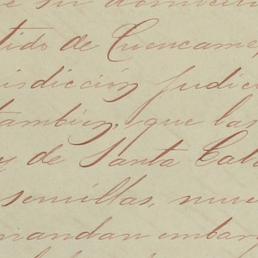 e su domicili
tido de Cuencamé
isdicción judic
tambien, que las
y de Santa Cata
semillas, mue
mandan embarg